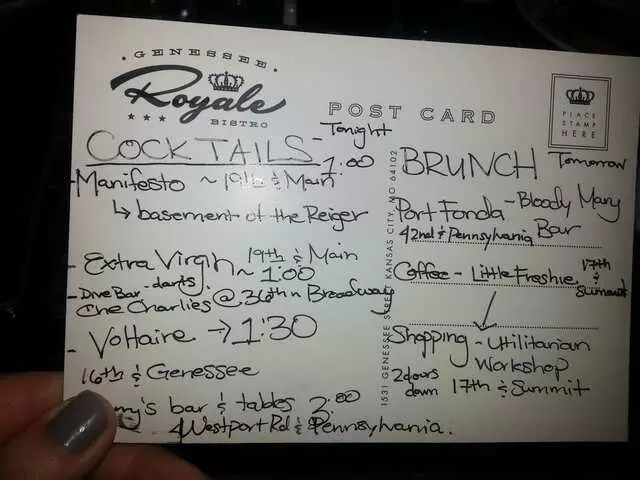 GENESSEE
Royale
BISTRO
POST CARD
PLACE
STAMP
HERE
COCKTAILS - Tonight
1:00
- Manifesto ~ 19th & Main
↳ basement of the Reiger
- Extra Virgin 19th & Main
~ 1:00
- Dive Bar - darts
The Charlies @ 36th n Broadway
- Voltaire → 1:30
16th & Genessee
bar & tables 2:00
Westport Rd & Pennsylvania.
1531 GENESSEE STREET KANSAS CITY, MO 64102
BRUNCH Tomorrow
Port Fonda - Bloody Mary
Bar
42nd & Pennsylvania
Coffee - Little Freshie 17th
& Summit
Shopping - Utilitarian
Workshop
2 doors
down 17th & Summit